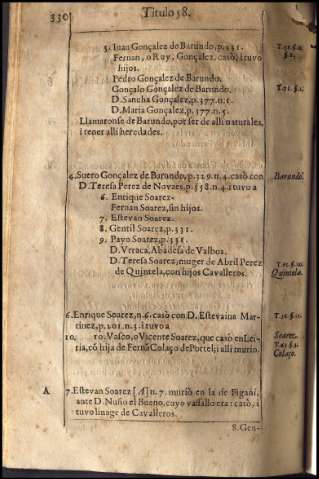 330
Titulo 58.
5. Iuan Gonçalez de Barundo, p.331.
Fernan, o Ruy, Gonçalez, casò, i tuvo
hijos.
Pedro Gonçalez de Barundo.
Gonçalo Gonçalez de Barundo.
D. Sancha Gonçalez, p.377.n.6.
D. Maria Gonçalez, p.377.n.5.
Llamaronse de Barundo, por ser de alli naturales,
i tener alli heredades.
4. Suero Gonçalez de Barundo, p.329.n.4. casò con
Barundo.
D. Teresa Perez de Novaes, p.358.n.4. i tuvo a
6. Enrique Soarez.
Fernan Soarez, sin hijos.
7. Estevan Soarez.
8. Gentil Soarez, p.331.
9. Payo Soarez, p.331.
D. Vrraca, Abadesa de Valboa.
D. Teresa Soarez, muger de Abril Perez
de Quintela, con hijos Cavalleros.
Quintela.
6. Enrique Soarez, n.6. casò con D. Estevaina Mar-
tinez, p.201.n.3. i tuvo a
10. 10. Vasco, o Vicente Soarez, que casò en Lei-
Soarez.
ria, cõ hija de Fernã Colaço de Portel; i alli murio.
Colaço.
A
7. Estevan Soarez [A] n.7. muriò en la de Pigañi,
ante D. Nuño el Bueno, cuyo vassallo era: casò, i
tuvo linage de Cavalleros.
8. Gen-